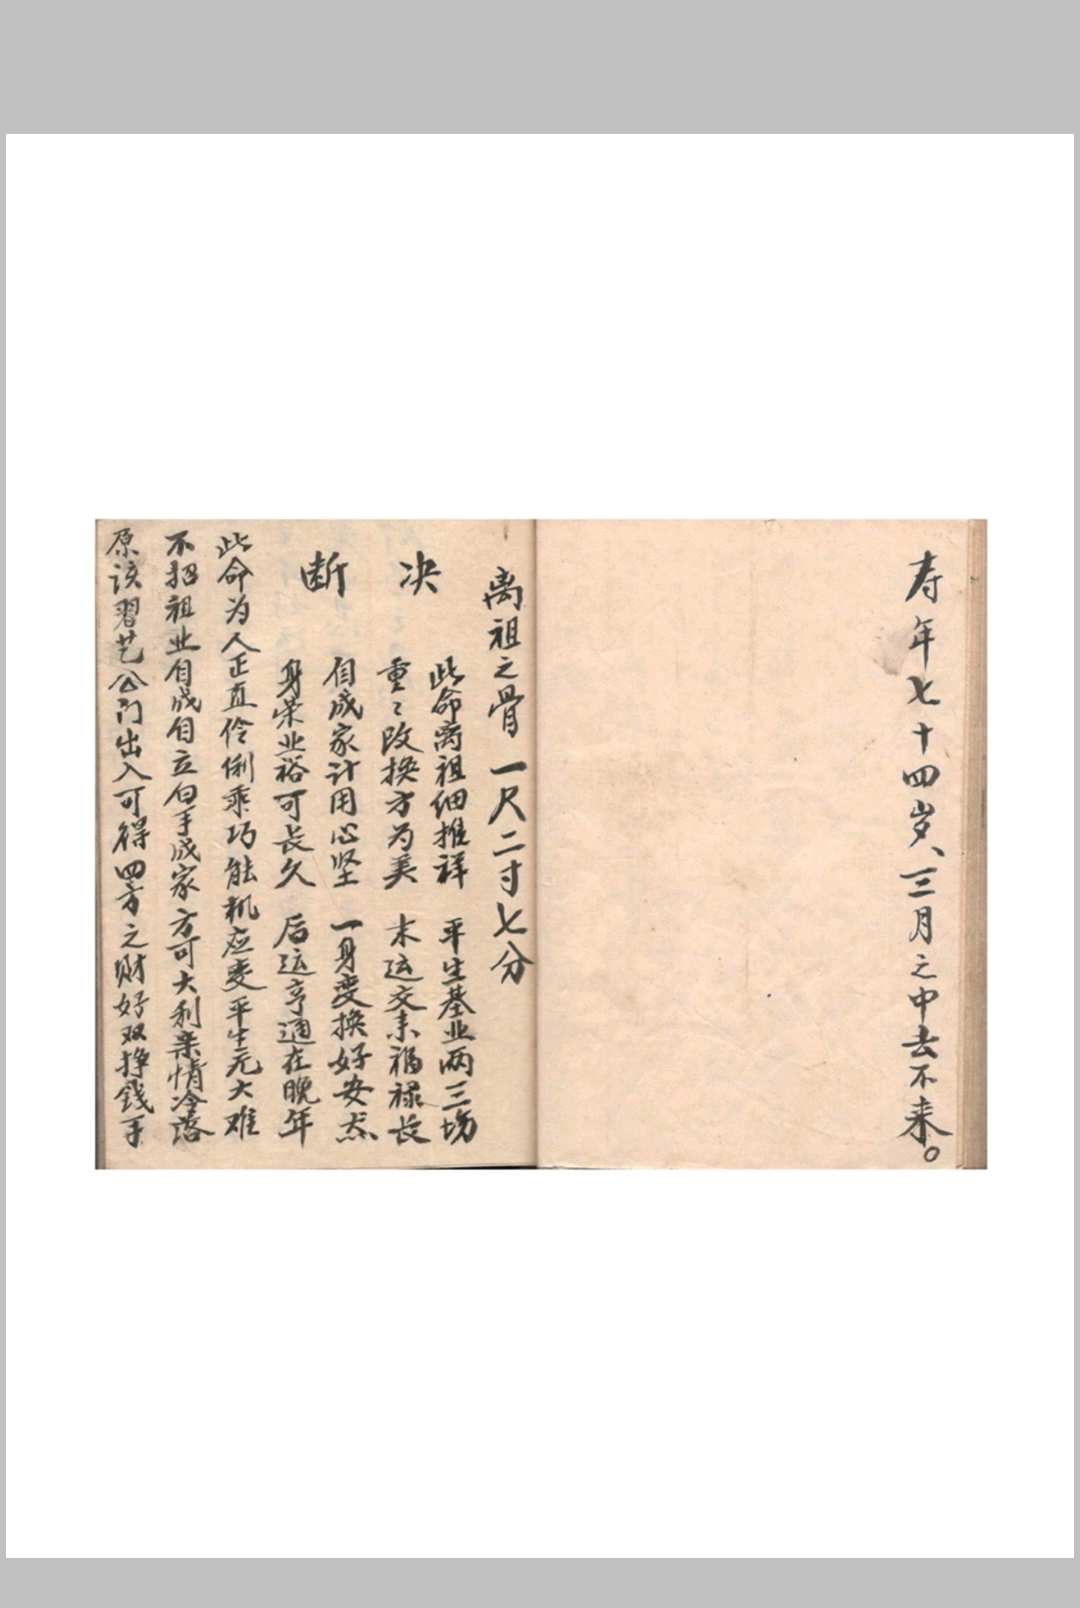 寿年七十四岁、三月之中去不来。
离祖之骨 一尺二寸七分
决断
此命离祖细推祥 平生基业两三场
重々改换方为美 末运交来福禄长
自成家计用心坚 一身变换好安然
身荣业裕可长久 后运亨通在晚年
此命为人正直伶俐乖巧能机应变平生元大难
不招祖业自成自立白手成家方可大利亲情冷落
原该習艺公门出入可得四方之财好双挣錢手